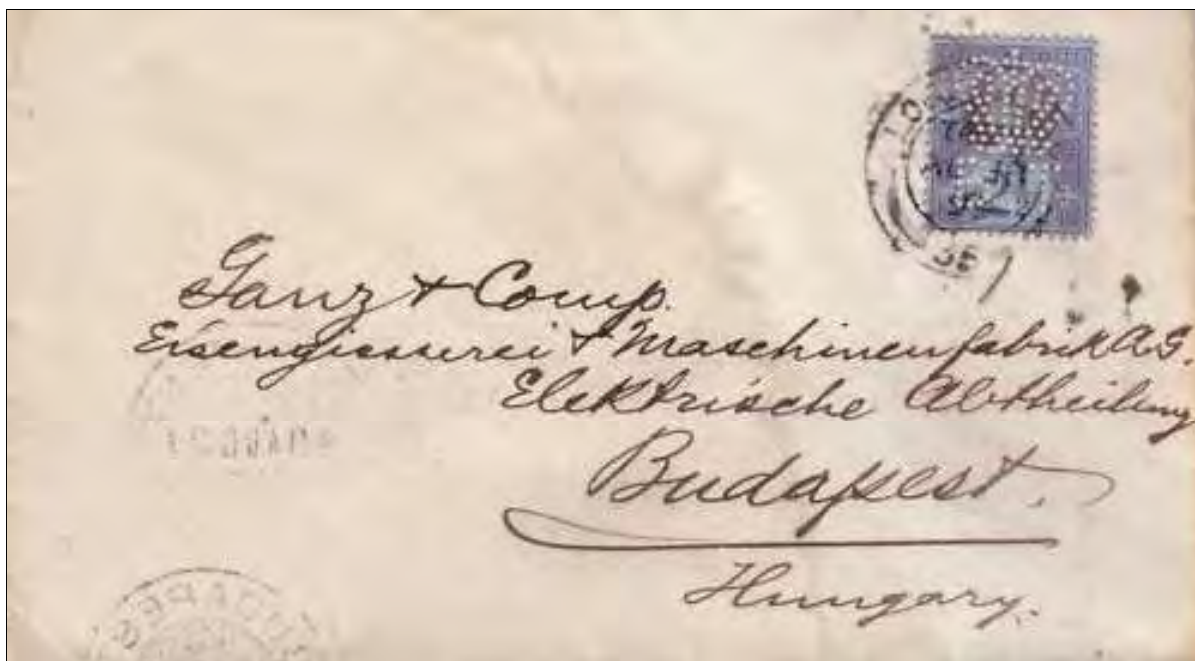 Ganz & Comp.
Eisengiesserei & Maschinenfabrik A.G.
Elektrische Abtheilung
Budapest.
Hungary.